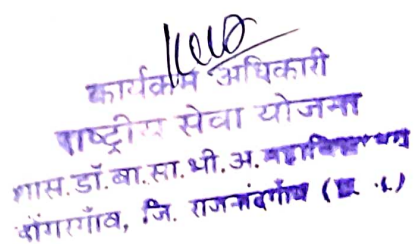 कार्यक्रम अधिकारी
राष्ट्रीय सेवा योजना
शास.डॉ.बा.सा.भी.अ.महाविद्यालय
डोंगरगाँव, जि. राजनांदगाँव (छ.ग.)